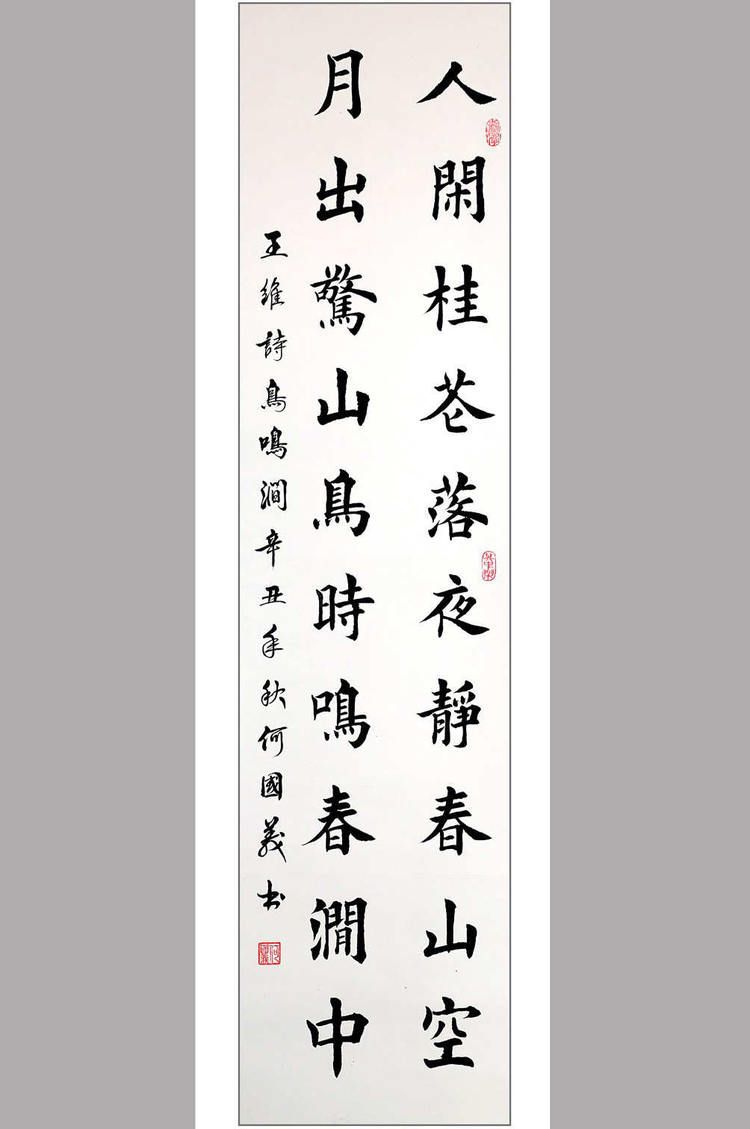 人閑桂花落夜靜春山空
月出驚山鳥時鳴春澗中
王維詩鳥鳴澗辛丑年秋何國義书